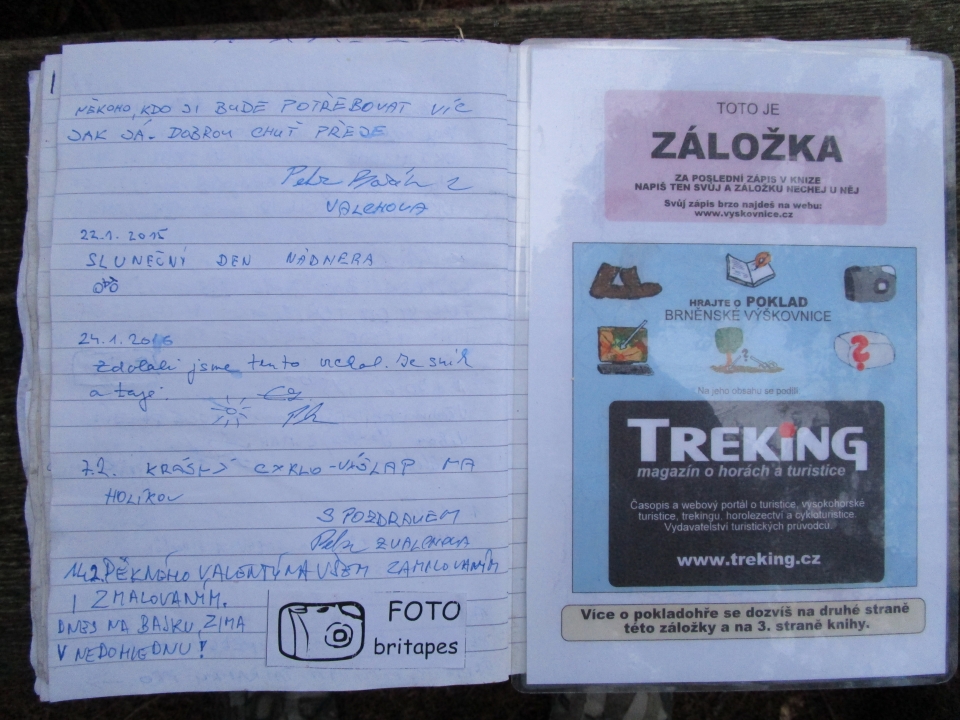 NĚKOHO, KDO JI BUDE POTŘEBOVAT VÍC
JAK JÁ. DOBROU CHUŤ PŘEJE
Petr
VALCHOVA
22.1. 2015
SLUNEČNÝ DEN NÁDHERA
24.1.2016
Zdolali jsme tento vrchol. Je sníh
a taje.
7.2. KRÁSNÝ CYKLO-VÁŠLAP NA
HOLÍKOV
S POZDRAVEM
Petr Z VALCHOVA
14.2. PĚKNÉHO VALENTÝNA VŠEM ZAMILOVANÝM
I ZMALOVANÍM.
DNES NA BAJKU ZIMA
V NEDOHLEDNU!
FOTO
britapes
TOTO JE
ZÁLOŽKA
ZA POSLEDNÍ ZÁPIS V KNIZE
NAPIŠ TEN SVŮJ A ZÁLOŽKU NECHEJ U NĚJ
Svůj zápis brzo najdeš na webu:
www.vyskovnice.cz
HRAJTE O POKLAD
BRNĚNSKÉ VÝŠKOVNICE
?
?
Na jeho obsahu se podílí
TREKING
magazín o horách a turistice
Časopis a webový portál o turistice, vysokohorské
turistice, trekingu, horolezectví a cykloturistice.
Vydavatelství turistických průvodců.
www.treking.cz
Více o pokladohře se dozvíš na druhé straně
této záložky a na 3. straně knihy.